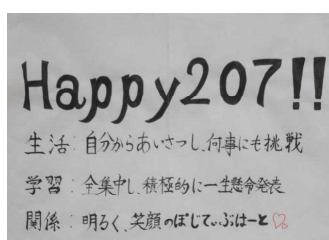 Happy207!!
生活：自分からあいさつし、何事にも挑戦
学習：全集中し、積極的に一生懸命発表
関係：明るく、笑顔のぽじてぃぶはーと♡